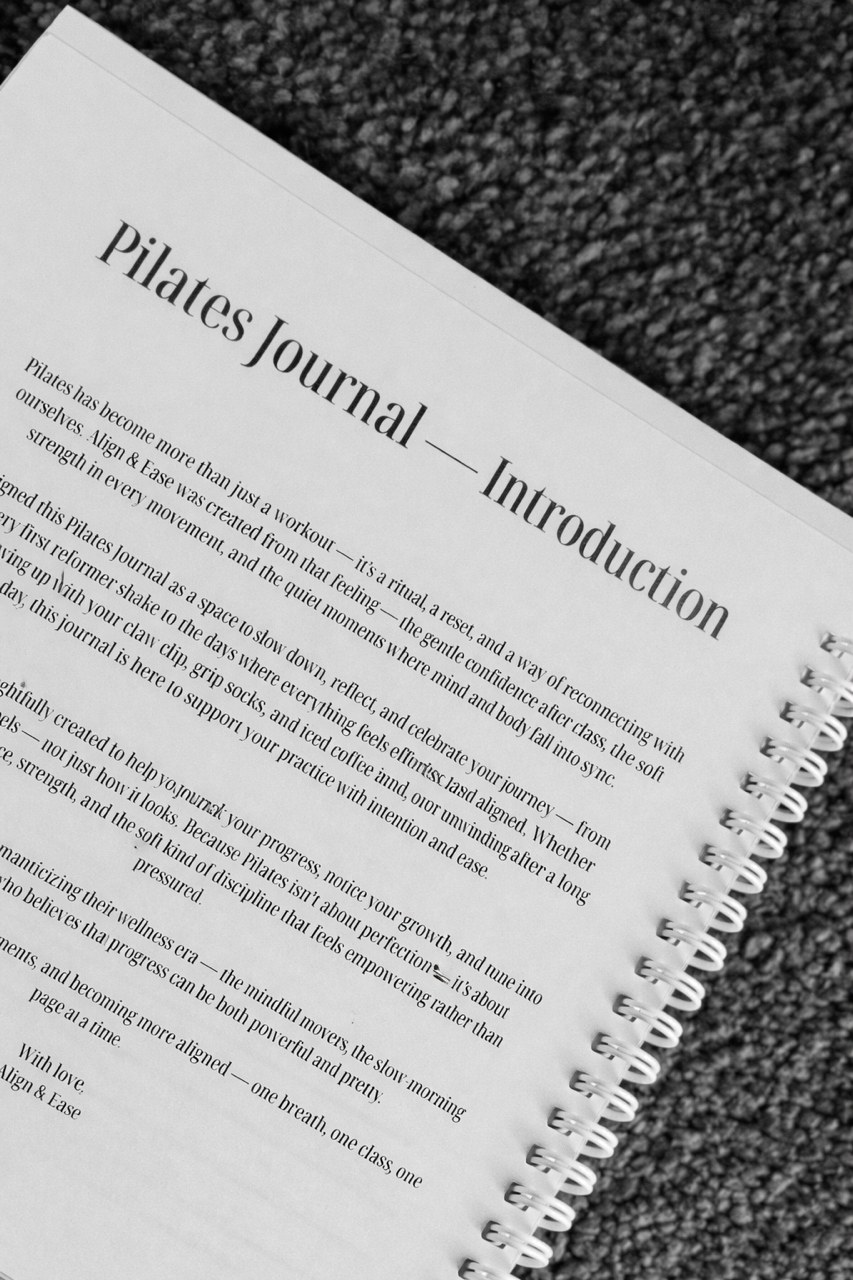 Pilates Journal — Introduction
Pilates has become more than just a workout — it's a ritual, a reset, and a way of reconnecting with
ourselves. Align & Ease was created from that feeling — the gentle confidence after class, the soft
strength in every movement, and the quiet moments where mind and body fall into sync.
this Pilates Journal as a space to slow down, reflect, and celebrate your journey — from
first reformer shake to the days where everything feels aligned. Whether
up with your claw clip, grip socks, and iced coffee unwinding after a long
day, this journal is here to support your practice with intention and ease.
created to help your progress, notice your growth, and tune into
— not just how it looks. Because Pilates isn't about perfection — it's about
strength, and the soft kind of discipline that feels empowering rather than
pressured.
their wellness era — the mindful movers, the slow-morning
who believes that progress can be both powerful and pretty.
and becoming more aligned — one breath, one class, one
page at a time.
With love,
Align & Ease